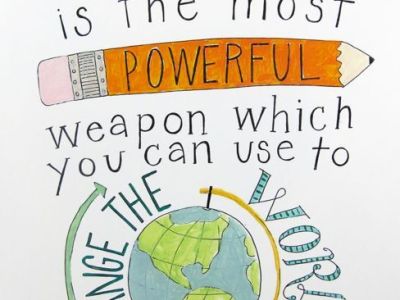 is the most
POWERFUL
weapon which
you can use to
ANGE THE
WORL